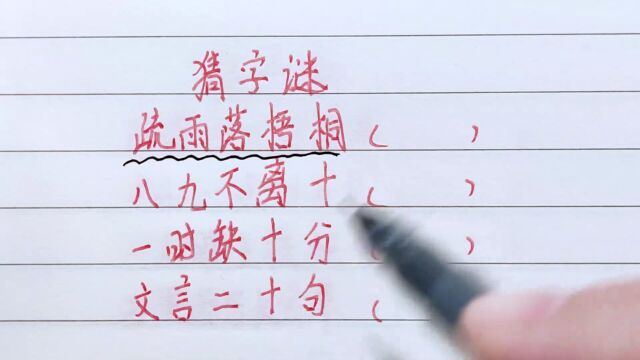 猜字谜
疏雨落捂桐（ ）
八九不离十（ ）
一时缺十分（ ）
文言二十句（